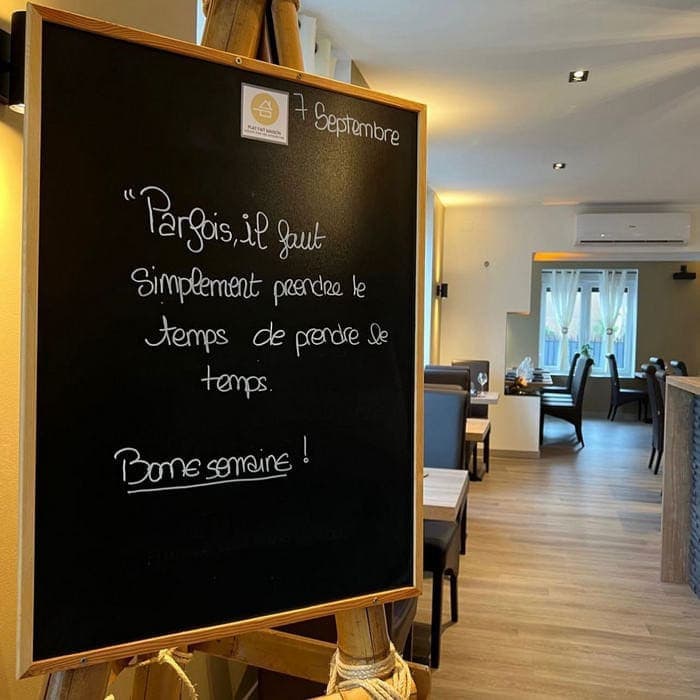 7 Septembre
PLAT FAIT MAISON
"Parfois, il faut
simplement prendre le
temps de prendre le
temps.
Bonne semaine !